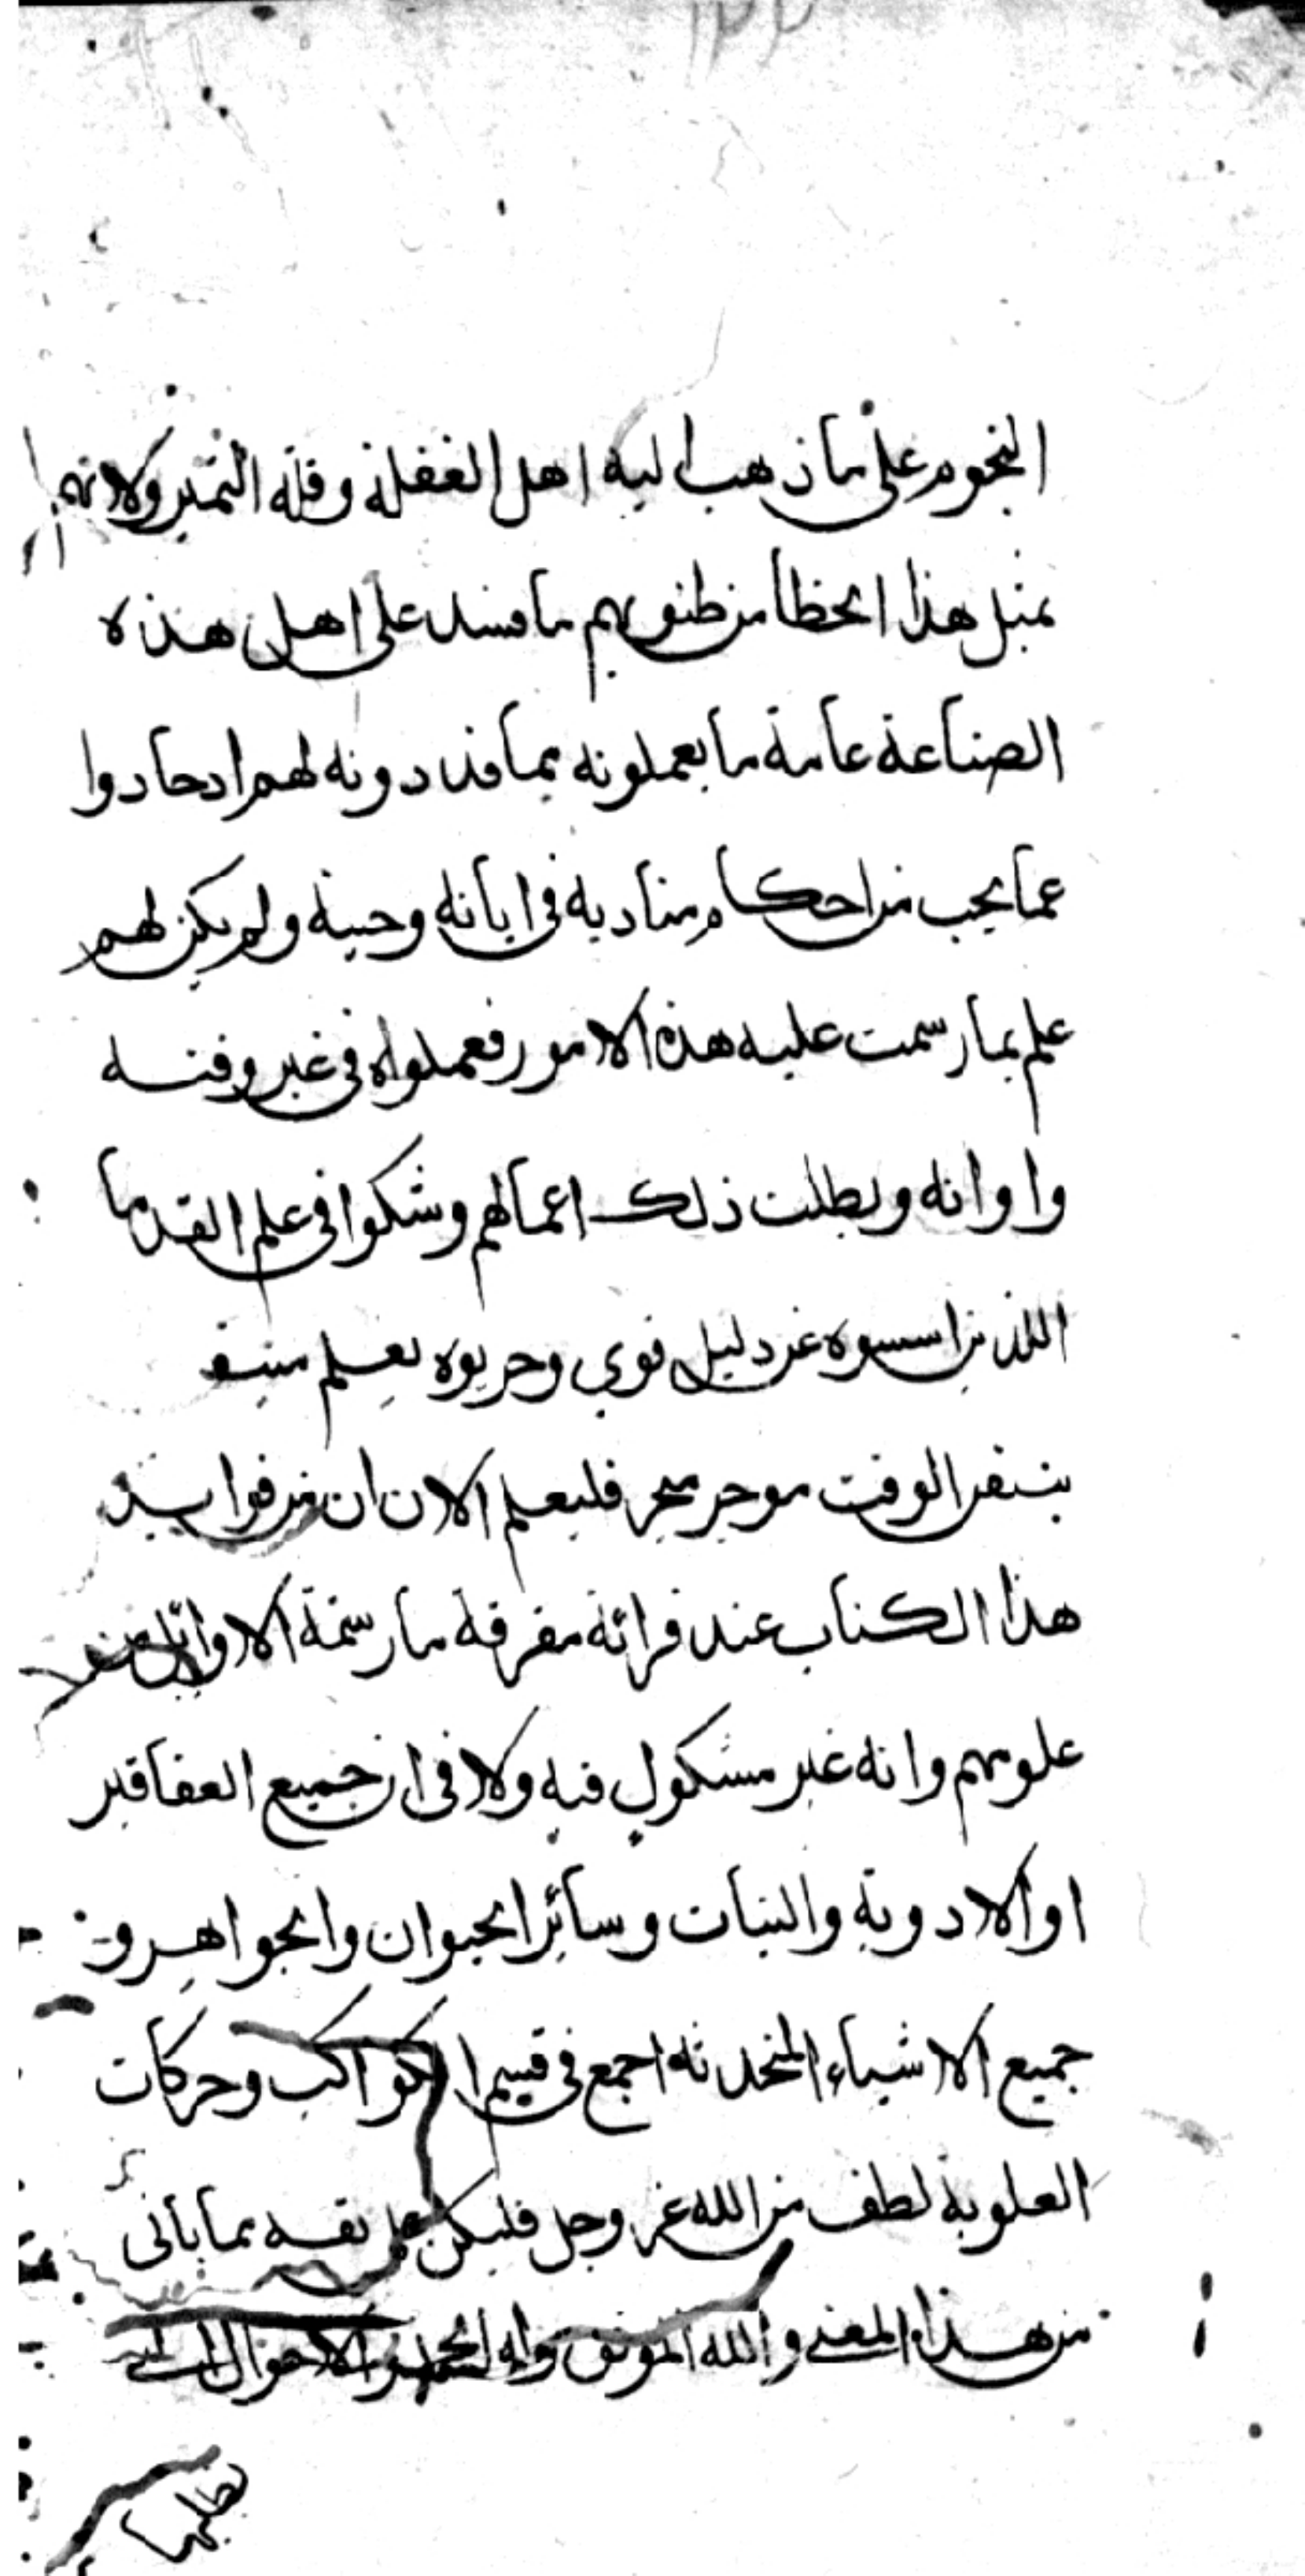 النجوم على ما ذهب اليه اهل الغفلة وقلة التميز ولانهم
بمثل هذا الخطا من ظنونهم ما فسد على اهل هذه
الصناعة عامة ما يعملونه بما قد دونه لهم اد حادوا
عما يجب من احكام مناديه في ابانه وحينه ولم يكن لهم
علم بما رسمت عليه هذه الامور فعملواه في غير وقته
واوانه وبطلت ذلك اعمالهم وشكوا في علم القدما
اللذين اسسوه عن دليل قوي وجربوه بعلم
الوقت فليعلم الان ان من فوايد
هذا الكتاب عند قرائة مفرقة ما رسمة الاوائل من
علومهم وانه غير مشكوك فيه ولا في ان جميع العقاقير
او الادوية والنبات وسائر الحيوان والجواهر و
جميع الاشياء المتحدثه اجمع في قسم الكواكب وحركات
العلوية لطف من الله عز وجل فليكن على ثقه بما ياتى
من هذا المعنى والله الموفق